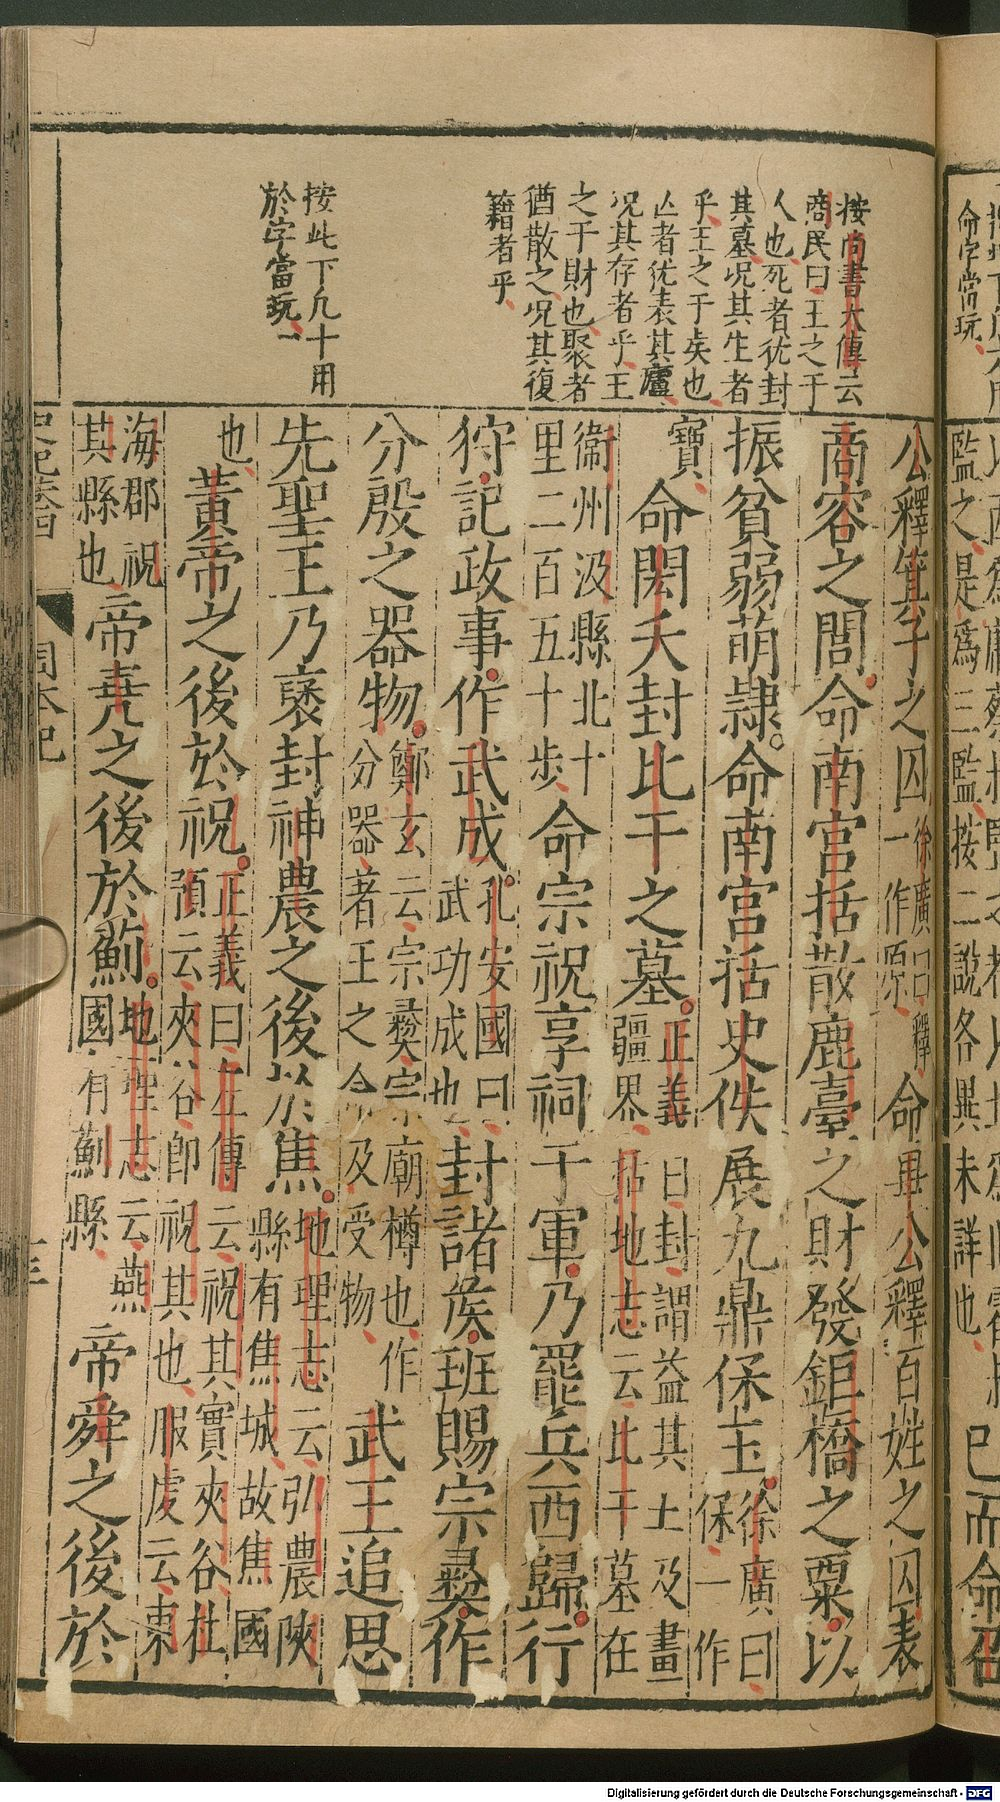 按尚書大傳云
商民曰王之于
人也死者犹封
其墓况其生者
乎王之于矦也
亾者犹表其廬
况其存者乎王
之于財也聚者
猶散之况其復
籍者乎
按此下凡十用
於字當玩
公釋箕子之囚徐廣曰釋一作原命畢公釋百姓之囚表
商容之閭命南宮括散鹿臺之財發鉅橋之粟以
振貧弱萌隷命南宮括史佚展九鼎保玉徐廣曰保一作
寶命閎夭封比干之墓正義曰封謂益其土及畫疆界括地志云比干墓在
衞州汲縣北十里二百五十步命宗祝享祠于軍乃罷兵西歸行
狩記政事作武成孔安國曰武功成也封諸矦班賜宗彝作
分殷之器物鄭玄云宗彝宗廟樽也作分器著王之命及受物武王追思
先聖王乃襃封神農之後於焦地理志云弘農陝縣有焦城故焦國
也黃帝之後於祝正義曰左傳云祝其實夾谷杜預云夾谷卽祝其也服虔云東
海郡祝其縣也帝堯之後於薊地理志云燕國有薊縣帝舜之後於
史記卷四 周本紀
命字當玩
監之是爲三監按二說各異未詳也已而命召
Digitalisierung gefördert durch die Deutsche Forschungsgemeinschaft - DFG